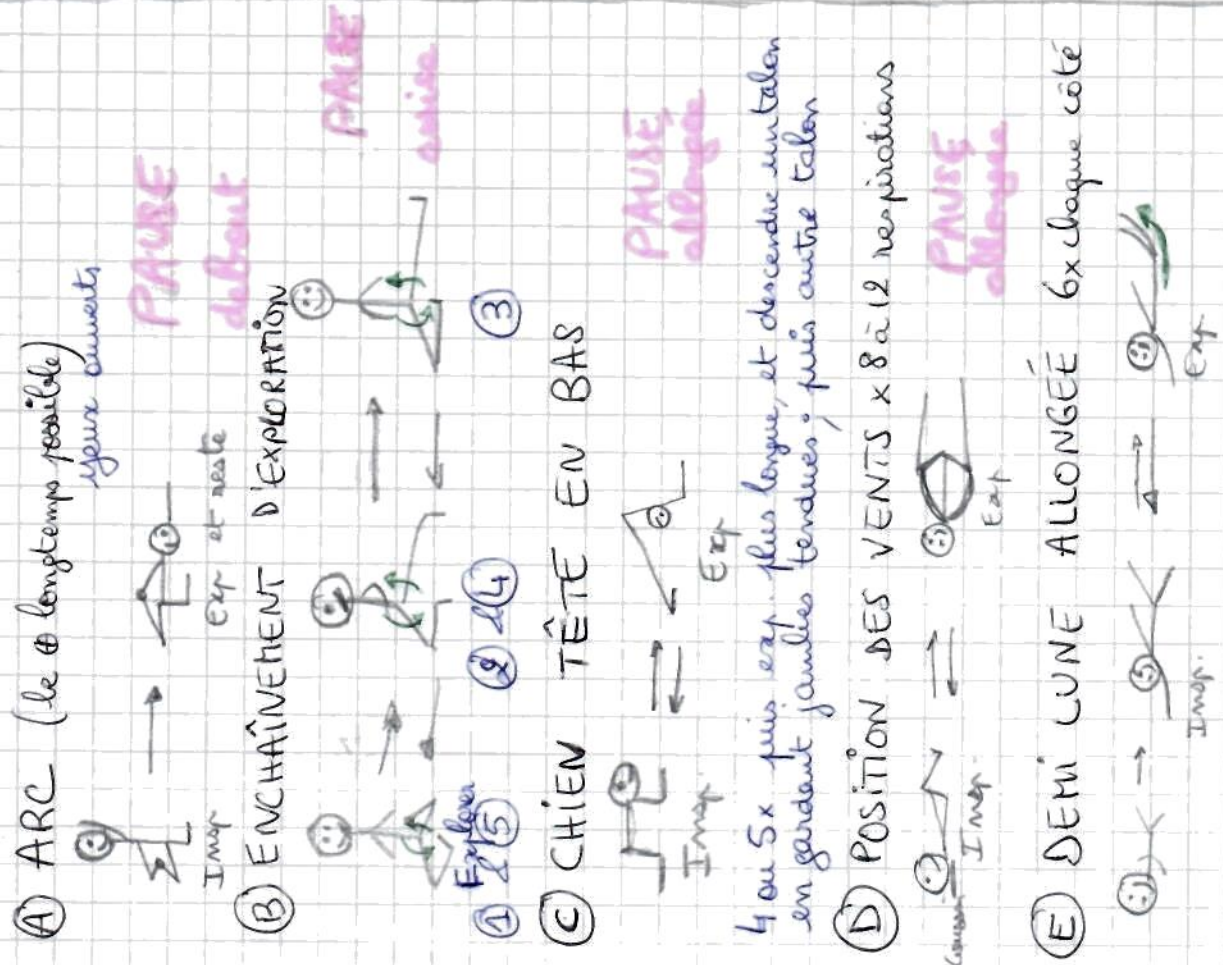 A ARC (le ⊕ longtemps possible)
yeux ouverts
Insp
Exp et reste
PAUSE
debout
B ENCHAÎNEMENT D'EXPLORATION
PAUSE
assise
Explorer
1 & 5
2 & 4
3
C CHIEN TÊTE EN BAS
Insp
Exp
PAUSE
allongée
4 ou 5x puis exp. plus longue, et descendre un talon
en gardant jambes tendues; puis autre talon
D POSITION DES VENTS x 8 à 12 respirations
coussin
Insp.
Exp
PAUSE
allongée
E DEMI LUNE ALLONGÉE 6x chaque côté
Insp.
Exp